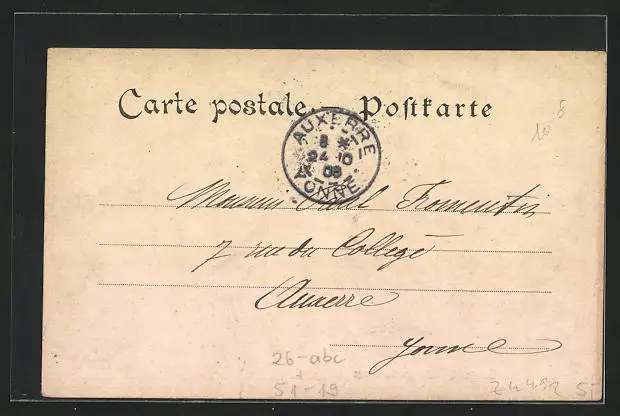 Carte postale. — Postkarte
AUXERRE
8 *
24 10
08
YONNE
Monsieur Fromentin
7 rue du Collège
Auxerre
Yonne
26-abc
51-19
10 8